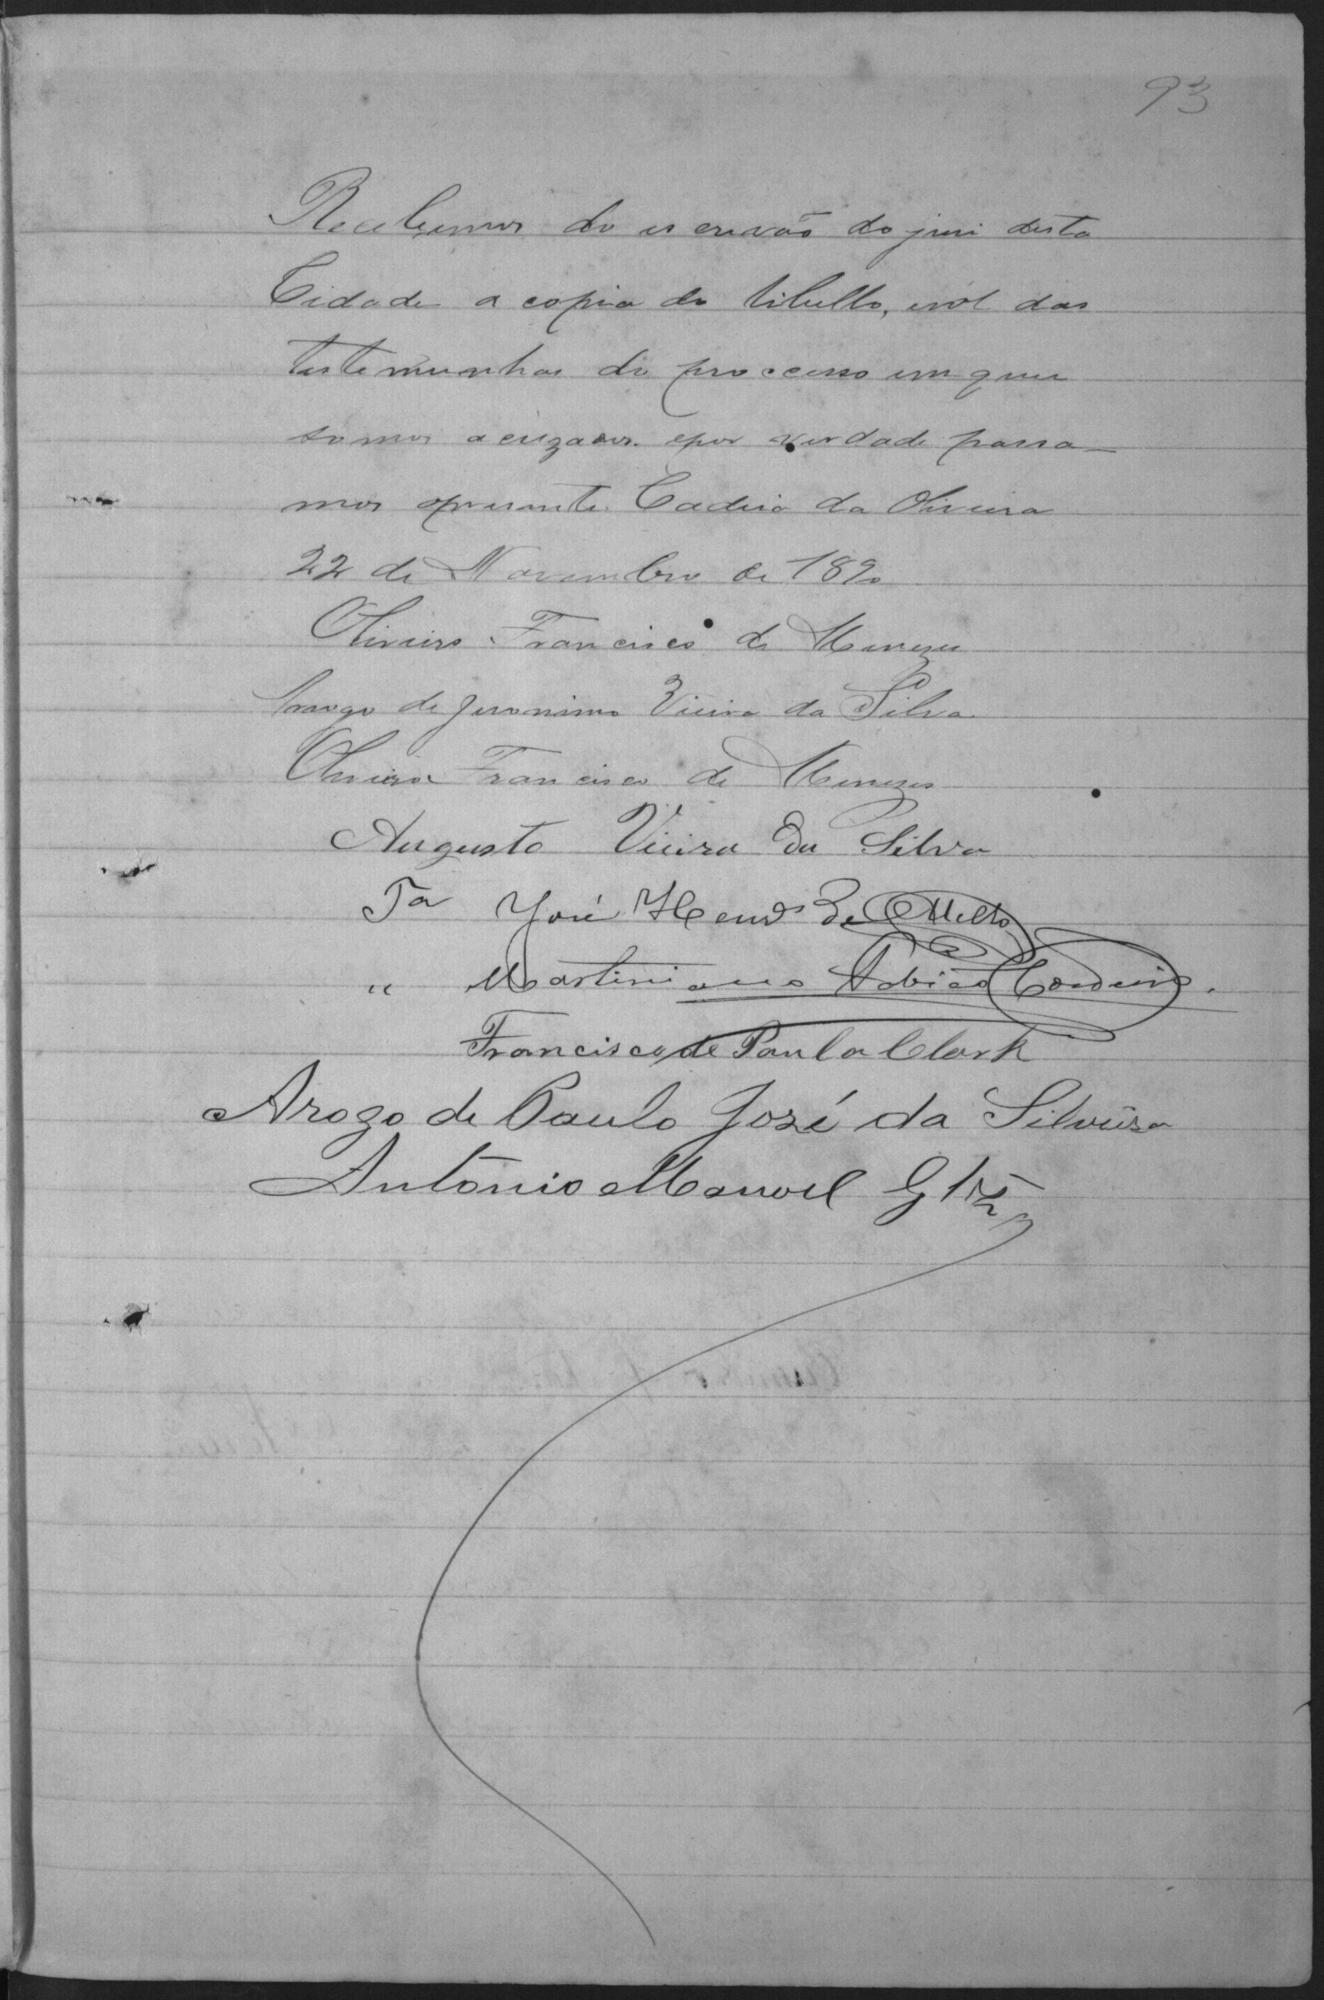 93
Recebemos do escrivão do juri desta
Cidade a copia do libello, e rol das
testemunhas do processo em que
somos acuzados. e por verdade passa-
mos o presente. Cadeia da Oliveira
22 de Novembro de 1890
Oliveira Francisco de Menezes
a rogo de Jeronimo Vieira da Silva
Oliveira Francisco de Menezes
Augusto Vieira da Silva
Ta José Mend de Mello
" Martiniano Cordeiro.
Francisco de Paula Clark
Arogo de Paulo José da Silveira
Antonio Manoel